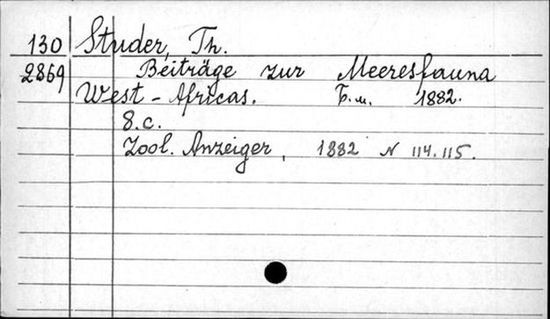 130 Studer, Th.
2869 Beiträge zur Meeresfauna
West-Africas. Б.м. 1882.
8.c.
Zool. Anzeiger, 1882 N 114.115.